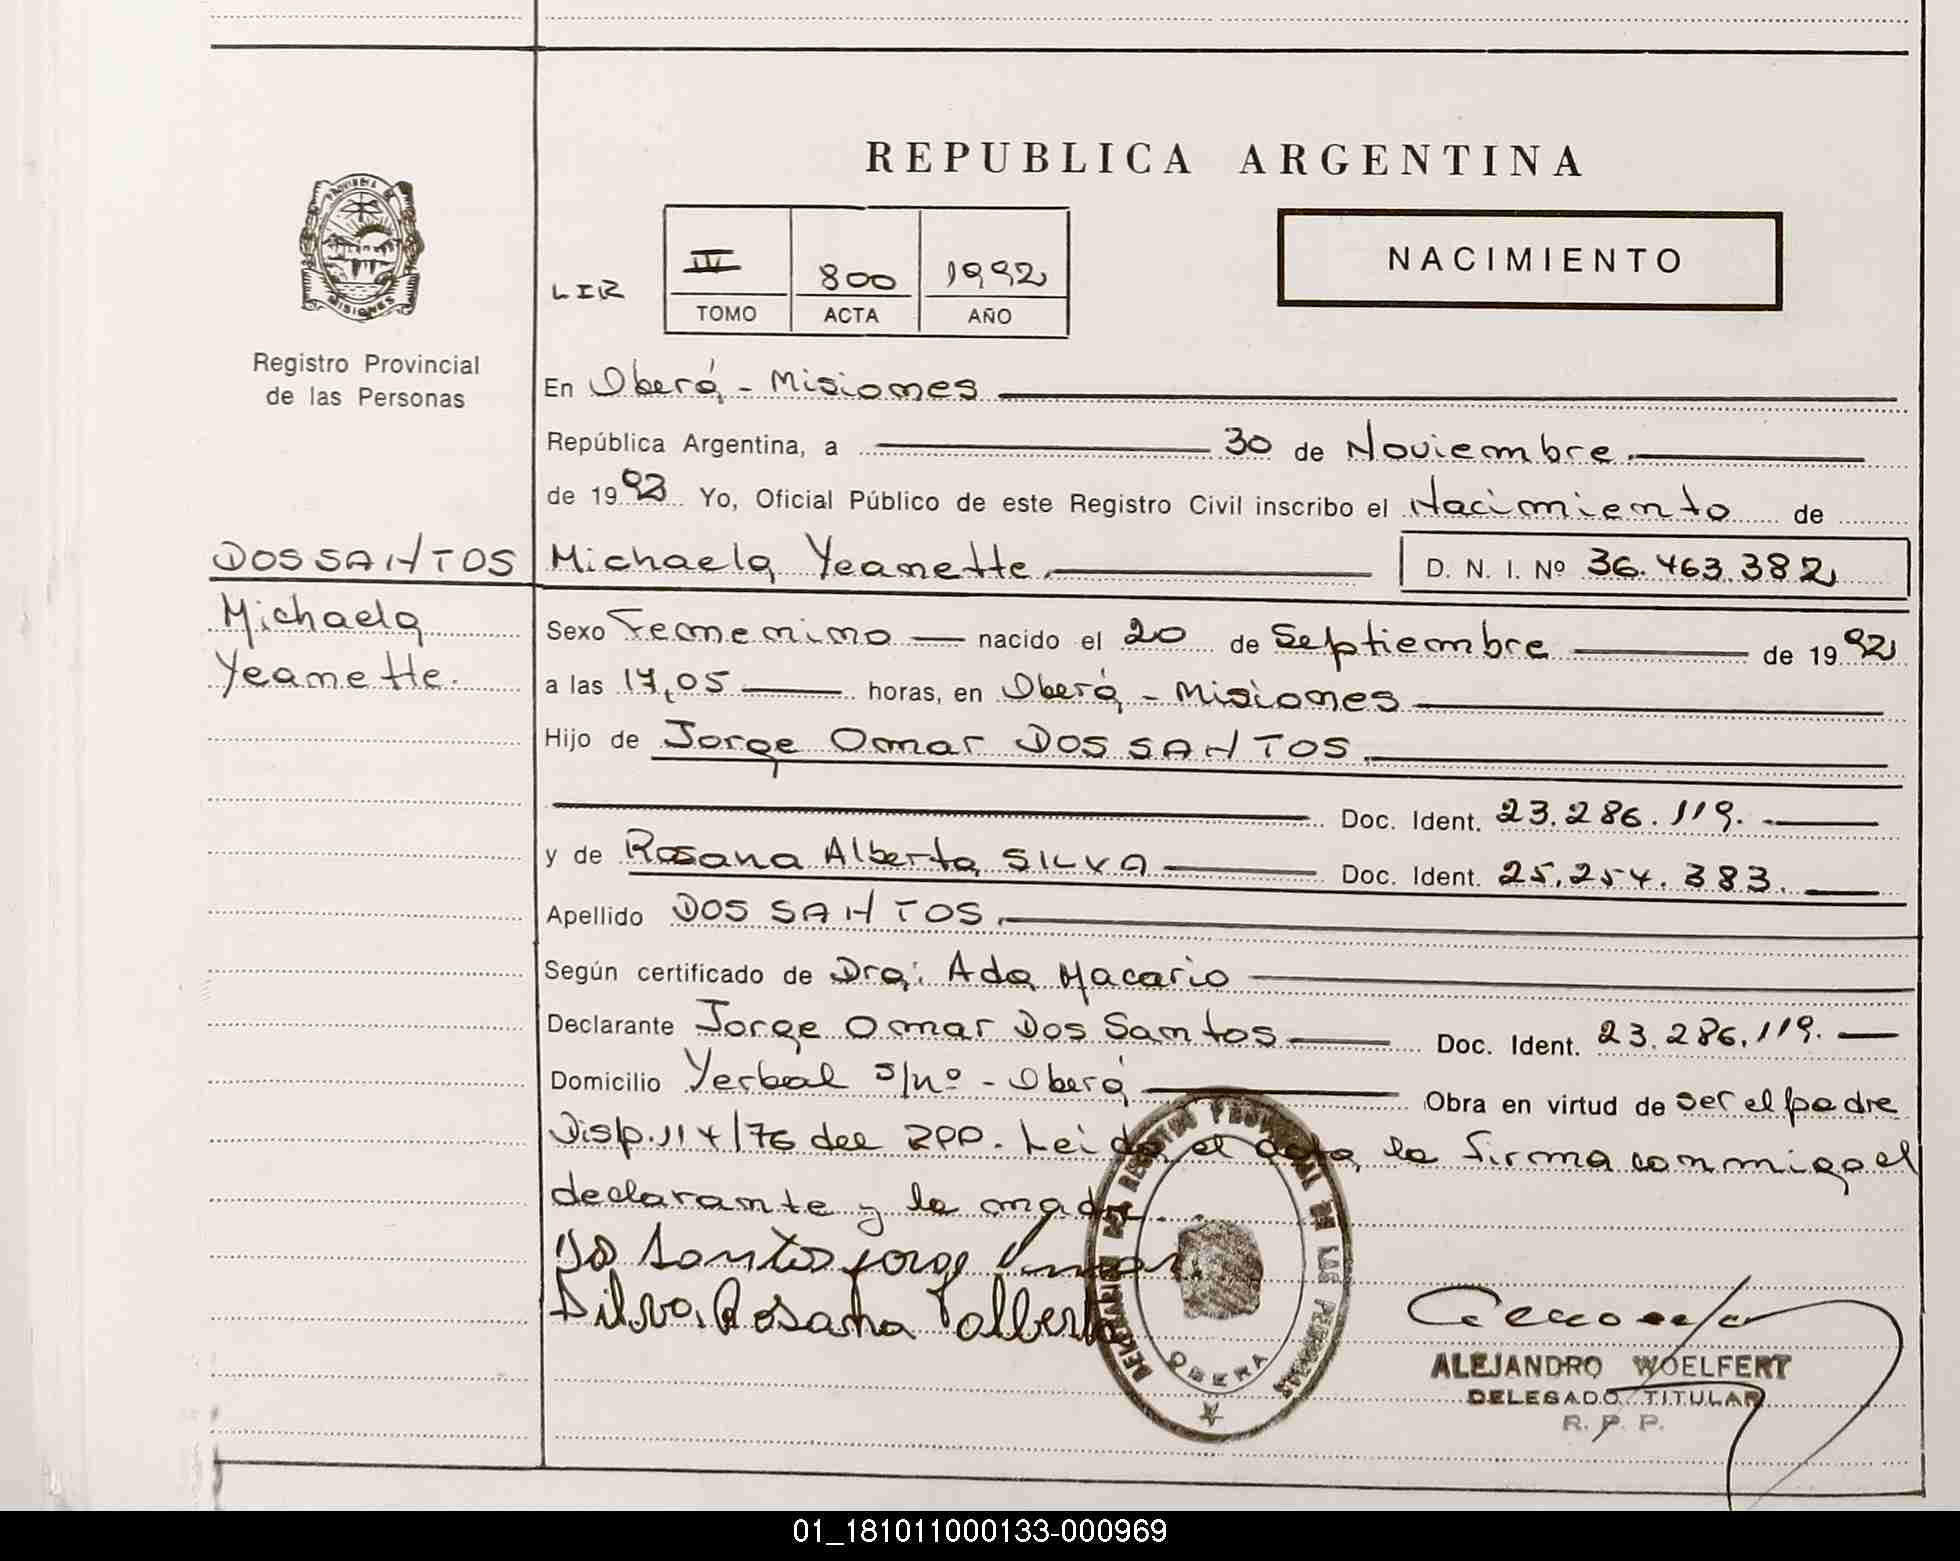 REPUBLICA ARGENTINA
PROVINCIA DE
MISIONES
Registro Provincial
de las Personas
LIR
IV 800 1992
TOMO ACTA AÑO
NACIMIENTO
En Oberá - Misiones
República Argentina, a 30 de Noviembre
de 1992 Yo, Oficial Público de este Registro Civil inscribo el Nacimiento de
DOS SANTOS
Michaela
Yeanette.
Michaela Yeanette. D. N. I. Nº 36.463.382
Sexo Femenino nacido el 20 de Septiembre de 1992
a las 17,05 horas, en Oberá - Misiones
Hijo de Jorge Omar DOS SANTOS.
Doc. Ident. 23.286.119.
y de Rosana Alberta SILVA Doc. Ident. 25.254.383.
Apellido DOS SANTOS.
Según certificado de Dra: Ada Macario
Declarante Jorge Omar Dos Santos Doc. Ident. 23.286.119.
Domicilio Yerbal s/nº - Oberá Obra en virtud de ser el padre
Disp. 114/76 del RPP. Leida el acta, la firma conmigo el
declarante y la madre.
Dos Santos Jorge Omar
Silva Rosana Alberta
DELEGACION DEL REGISTRO PROVINCIAL DE LAS PERSONAS
OBERA
ALEJANDRO WOELFERT
DELEGADO TITULAR
R. P. P.
01_181011000133-000969